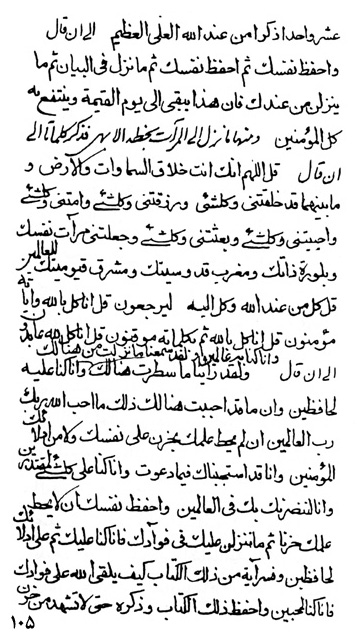 عشر واحد اذكروا من عند الله العلي العظيم الى ان قال
واحفظ نفسك ثم احفظ نفسك ثم ما نزل في البيان ثم ما
ينزل من عندك فان هذا يبقى الى يوم القيمة وينتفع به
كل المؤمنين ومنها ما نزل الى المرآت بخطه الابهر فذكر كلماتا الى
ان قال قل اللهم انك انت خلاق السماوات والارض و
ما بينهما قد خلقتني وكلشئ ورزقتني وكلشئ وامتني وكلشئ
واحييتني وكلشئ وبعثتني وكلشئ وجعلتني مرآت نفسك للعالمين
وبلورة ذاتك ومغرب قدوسيتك ومشرق قيوميتك
قل كل من عند الله وكل اليه ليرجعون قل انا كل بالله وآياته
مؤمنون قل انا كل بالله ثم بكلماته موقنون قل انا كل لله عابدون
وانا كنا بر عالمين ولقد سمعنا ما نزلت من هنالك
الى ان قال ولقد راينا ما سطرت هنالك وانا كنا عليه
لحافظين وان ما قد احببت هنالك ذلك ما احب الله ربك
رب العالمين ان لم يحط علمك بحزن على نفسك ولا من اولئك
المؤمنين وانا قد استجبناك فيما دعوت وانا كنا على كلشئ لمقتدرين
وانا لننصرنك بك في العالمين واحفظ نفسك ان لا يحط
علمك حزنا ثم ما ننزلن عليك في فوادك فانا كنا عليك ثم على اولئك
لحافظين وفسر آية من ذلك الكتاب كيف يلقي الله على فوادك
فانا كنا لمحبين واحفظ ذلك الكتاب وذكره حتى لا تشهد من حزن
١٠٥